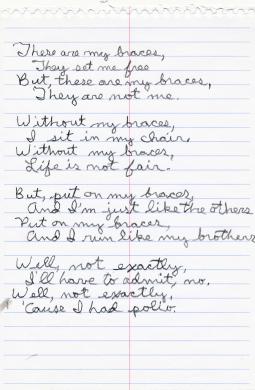 There are my braces,
They set me free
But, these are my braces,
They are not me.
Without my braces,
I sit in my chair.
Without my braces,
Life is not fair.
But, put on my braces,
And I'm just like the others
Put on my braces,
And I run like my brothers
Well, not exactly,
I'll have to admit, no.
Well, not exactly,
'Cause I had polio.